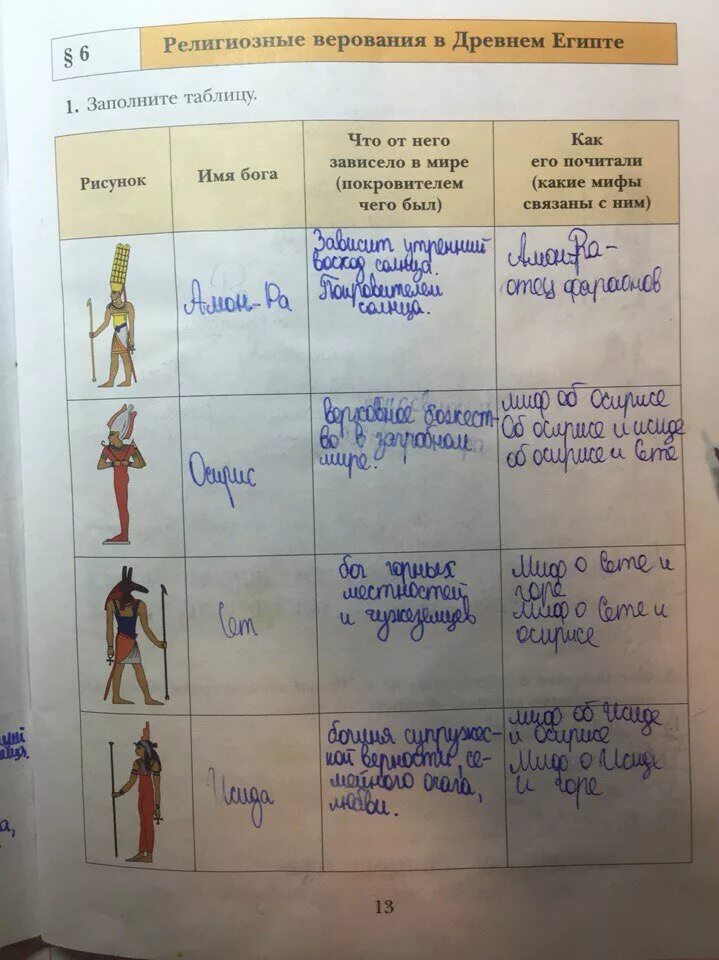 § 6
Религиозные верования в Древнем Египте
1. Заполните таблицу.
Рисунок
Имя бога
Что от него
зависело в мире
(покровителем
чего был)
Как
его почитали
(какие мифы
связаны с ним)
Амон-Ра
Зависит утренний
восход солнца.
Покровителем
солнца.
Амон-Ра -
отец фараонов
Осирис
верховное божест-
во в загробном
мире.
миф об осирисе
Об осирисе и исиде
об осирисе и Сете
Сет
бог горных
местностей
и чужеземцев
Миф о Сете и
горе
Миф о Сете и
осирисе
Исида
богиня супружес-
кой верности, се-
мейного очага,
любви.
миф об Исиде
и осирисе
Миф о Исиде
и горе
13